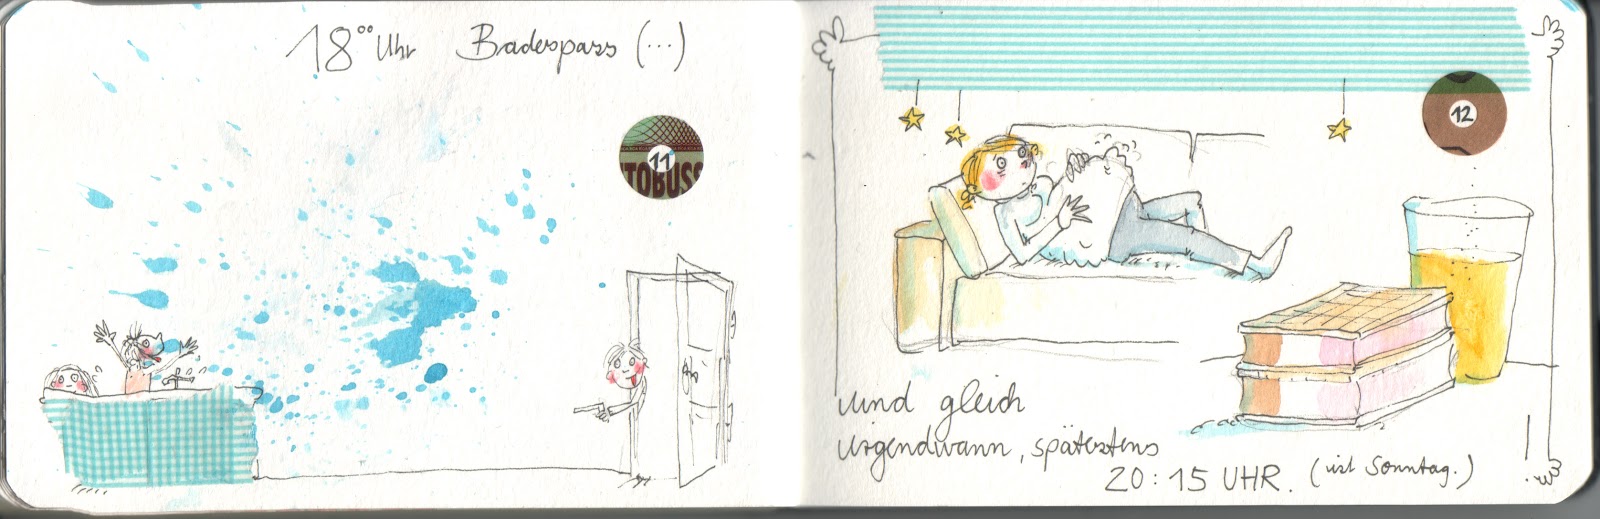 18⁰⁰ Uhr Badespass (...)
11
TOBUSS
12
und gleich
irgendwann, spätestens
20:15 UHR. (ist Sonntag.)